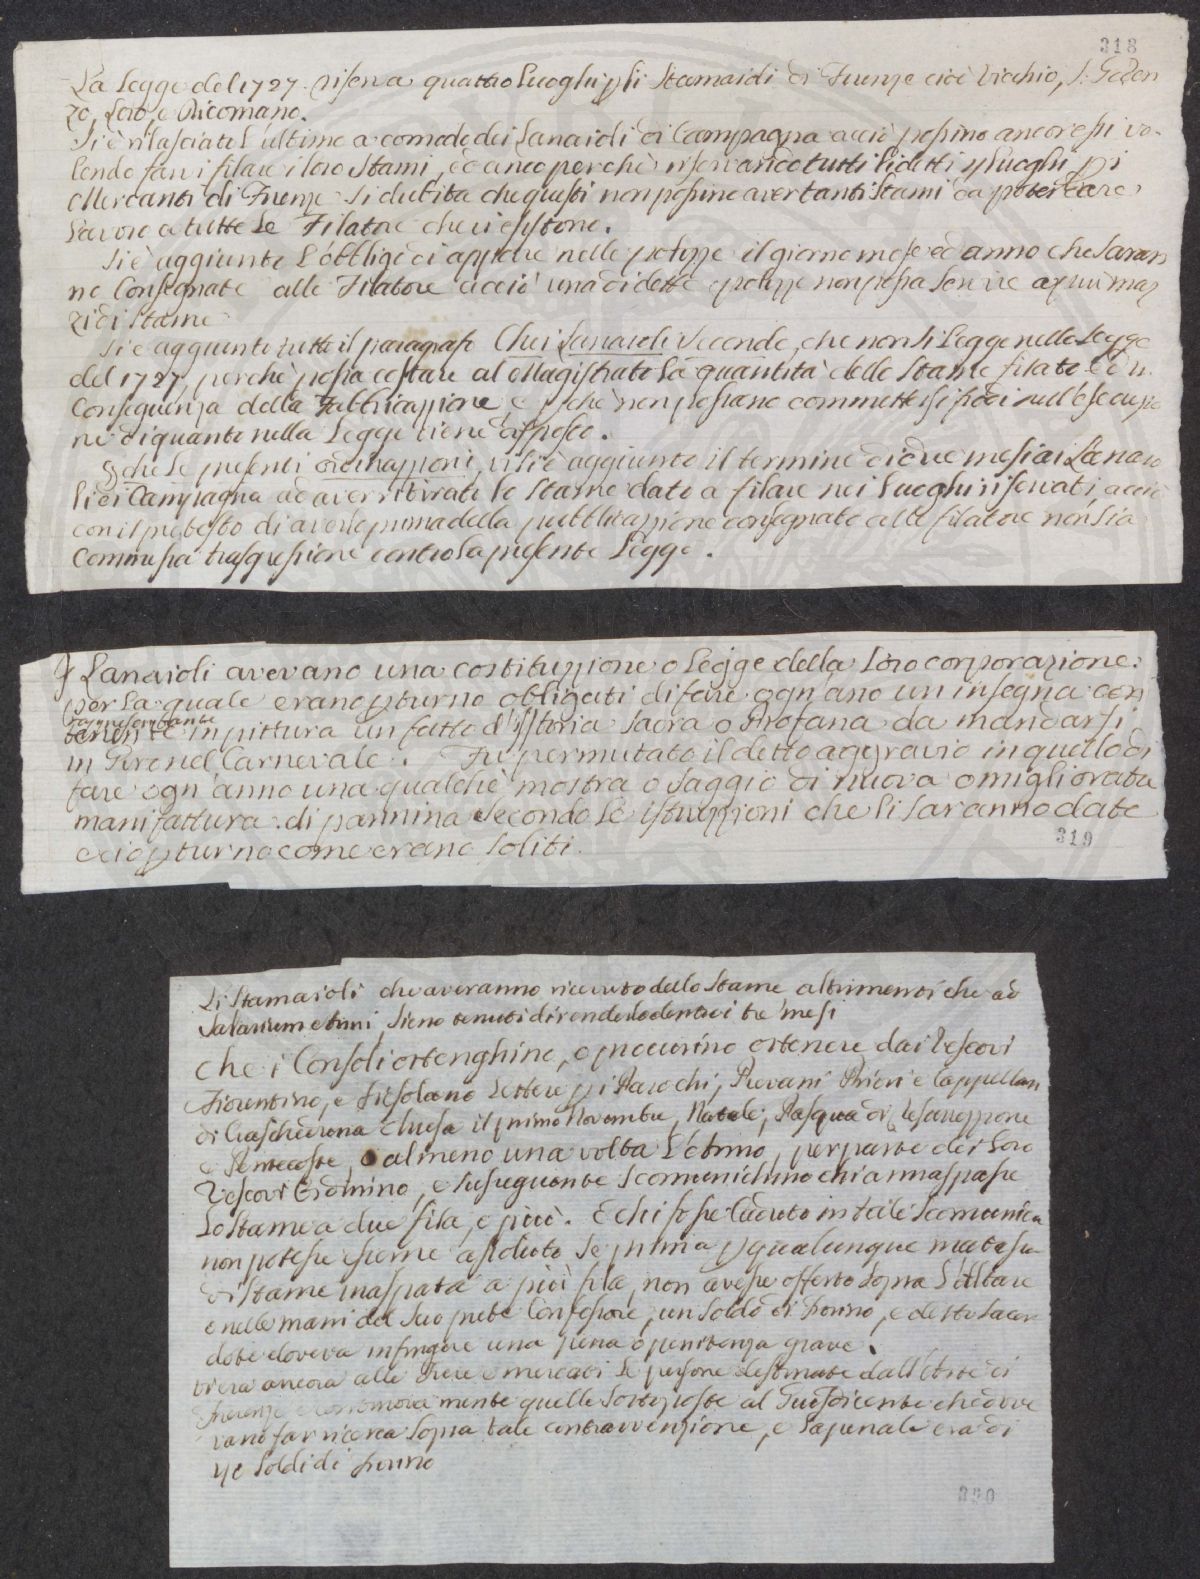 318
La Legge del 1727 riserva quattro Luoghi p gli Stamaioli di Firenze cioè Vicchio, S. Goden
zo, Loro, e Dicomano.
Si è rilasciato l'ultimo a comodo dei Lanaioli di Campagna acciò possino ancor essi vo-
lendo farvi filare i loro Stami, ed anco perchè riservando tutti li detti 4 Luoghi pi
Mercanti di Firenze si dubita che questi non possino aver tanti Stami da poter dare
lavoro a tutte le Filatore che vi esistono.
Si è aggiunto l'obbligo di apporre nelle polizze il giorno mese ed anno che saran
no Consegnate alle Filatore acciò una di dette polizze non possa servire a più maz
zi di Stame
Si è aggiunto tutto il paragrafo Che i Lanaioli secondo, che non si legge nella Legge
del 1727, perchè possa costare al Magistrato la quantità dello Stame filato ed in
Conseguenza della Fabbricazzione, e p chè non possano commettersi frodi nell'esecuzio
ne di quanto nella Legge viene disposto.
che le presenti ordinazzioni, vi si è aggiunto il termine di due mesi ai Lanaio
li di Campagna ad aver ritirato lo Stame dato a filare nei Luoghi riservati, acciò
con il pretesto di averlo prima della pubblicazzione consegnato alle filatore non sia
Commessa trasgressione contro la presente Legge.
I Lanaioli avevano una costituzzione o Legge della loro corporazione.
per la quale erano p turno obligati di fare ogn'ano un insegna con
rappresentante
in pittura un fatto d'Istoria Sacra o Profana da mandarsi
in Giro nel Carnevale. Fu permutato il detto aggravio in quello di
fare ogn'anno una qualche mostra o saggio di nuova o migliorata
manifattura di pannina secondo le istruzzioni che li saranno date
e ciò p turno come erano soliti.
319
Li Stamaioli che averanno ricevuto dello Stame altrimenti che ad
Salarium etimi, sieno tenuti di renderlo dentro i tre mesi
che i Consoli ottenghino, o procurino ottenere dai Vescovi
Fiorentino, e Fiesolano Lettere p i Parochi, Pievani Priori e Cappellani
di Ciascheduna chiesa il primo Novembre, Natale, Pasqua di resurezzione
e Pentecoste, o almeno una volta l'anno, per parte dei loro
Vescovi Erdmino, e susseguente scomunichino chi annaspasse
lo Stame a due fila, e più. E chi fosse caduto in tale scomunica
non potesse esserne assoluto se prima p qualunque matassa
di Stame inaspata a più fila, non avesse offerto sopra l'Altare
e nelle mani del suo prete Confessore, un soldo di fiorino, e detto sacer
dote doveva infingere una pena o penitenza grave.
v'era ancora alle Fiere e mercati le persone destinate dall'Arte di
Firenze mente quelle sottoposte al Giusdicente che dove
vano far ricerca sopra tale contravvenzione, e la penale era di
40 soldi di fiorino
320